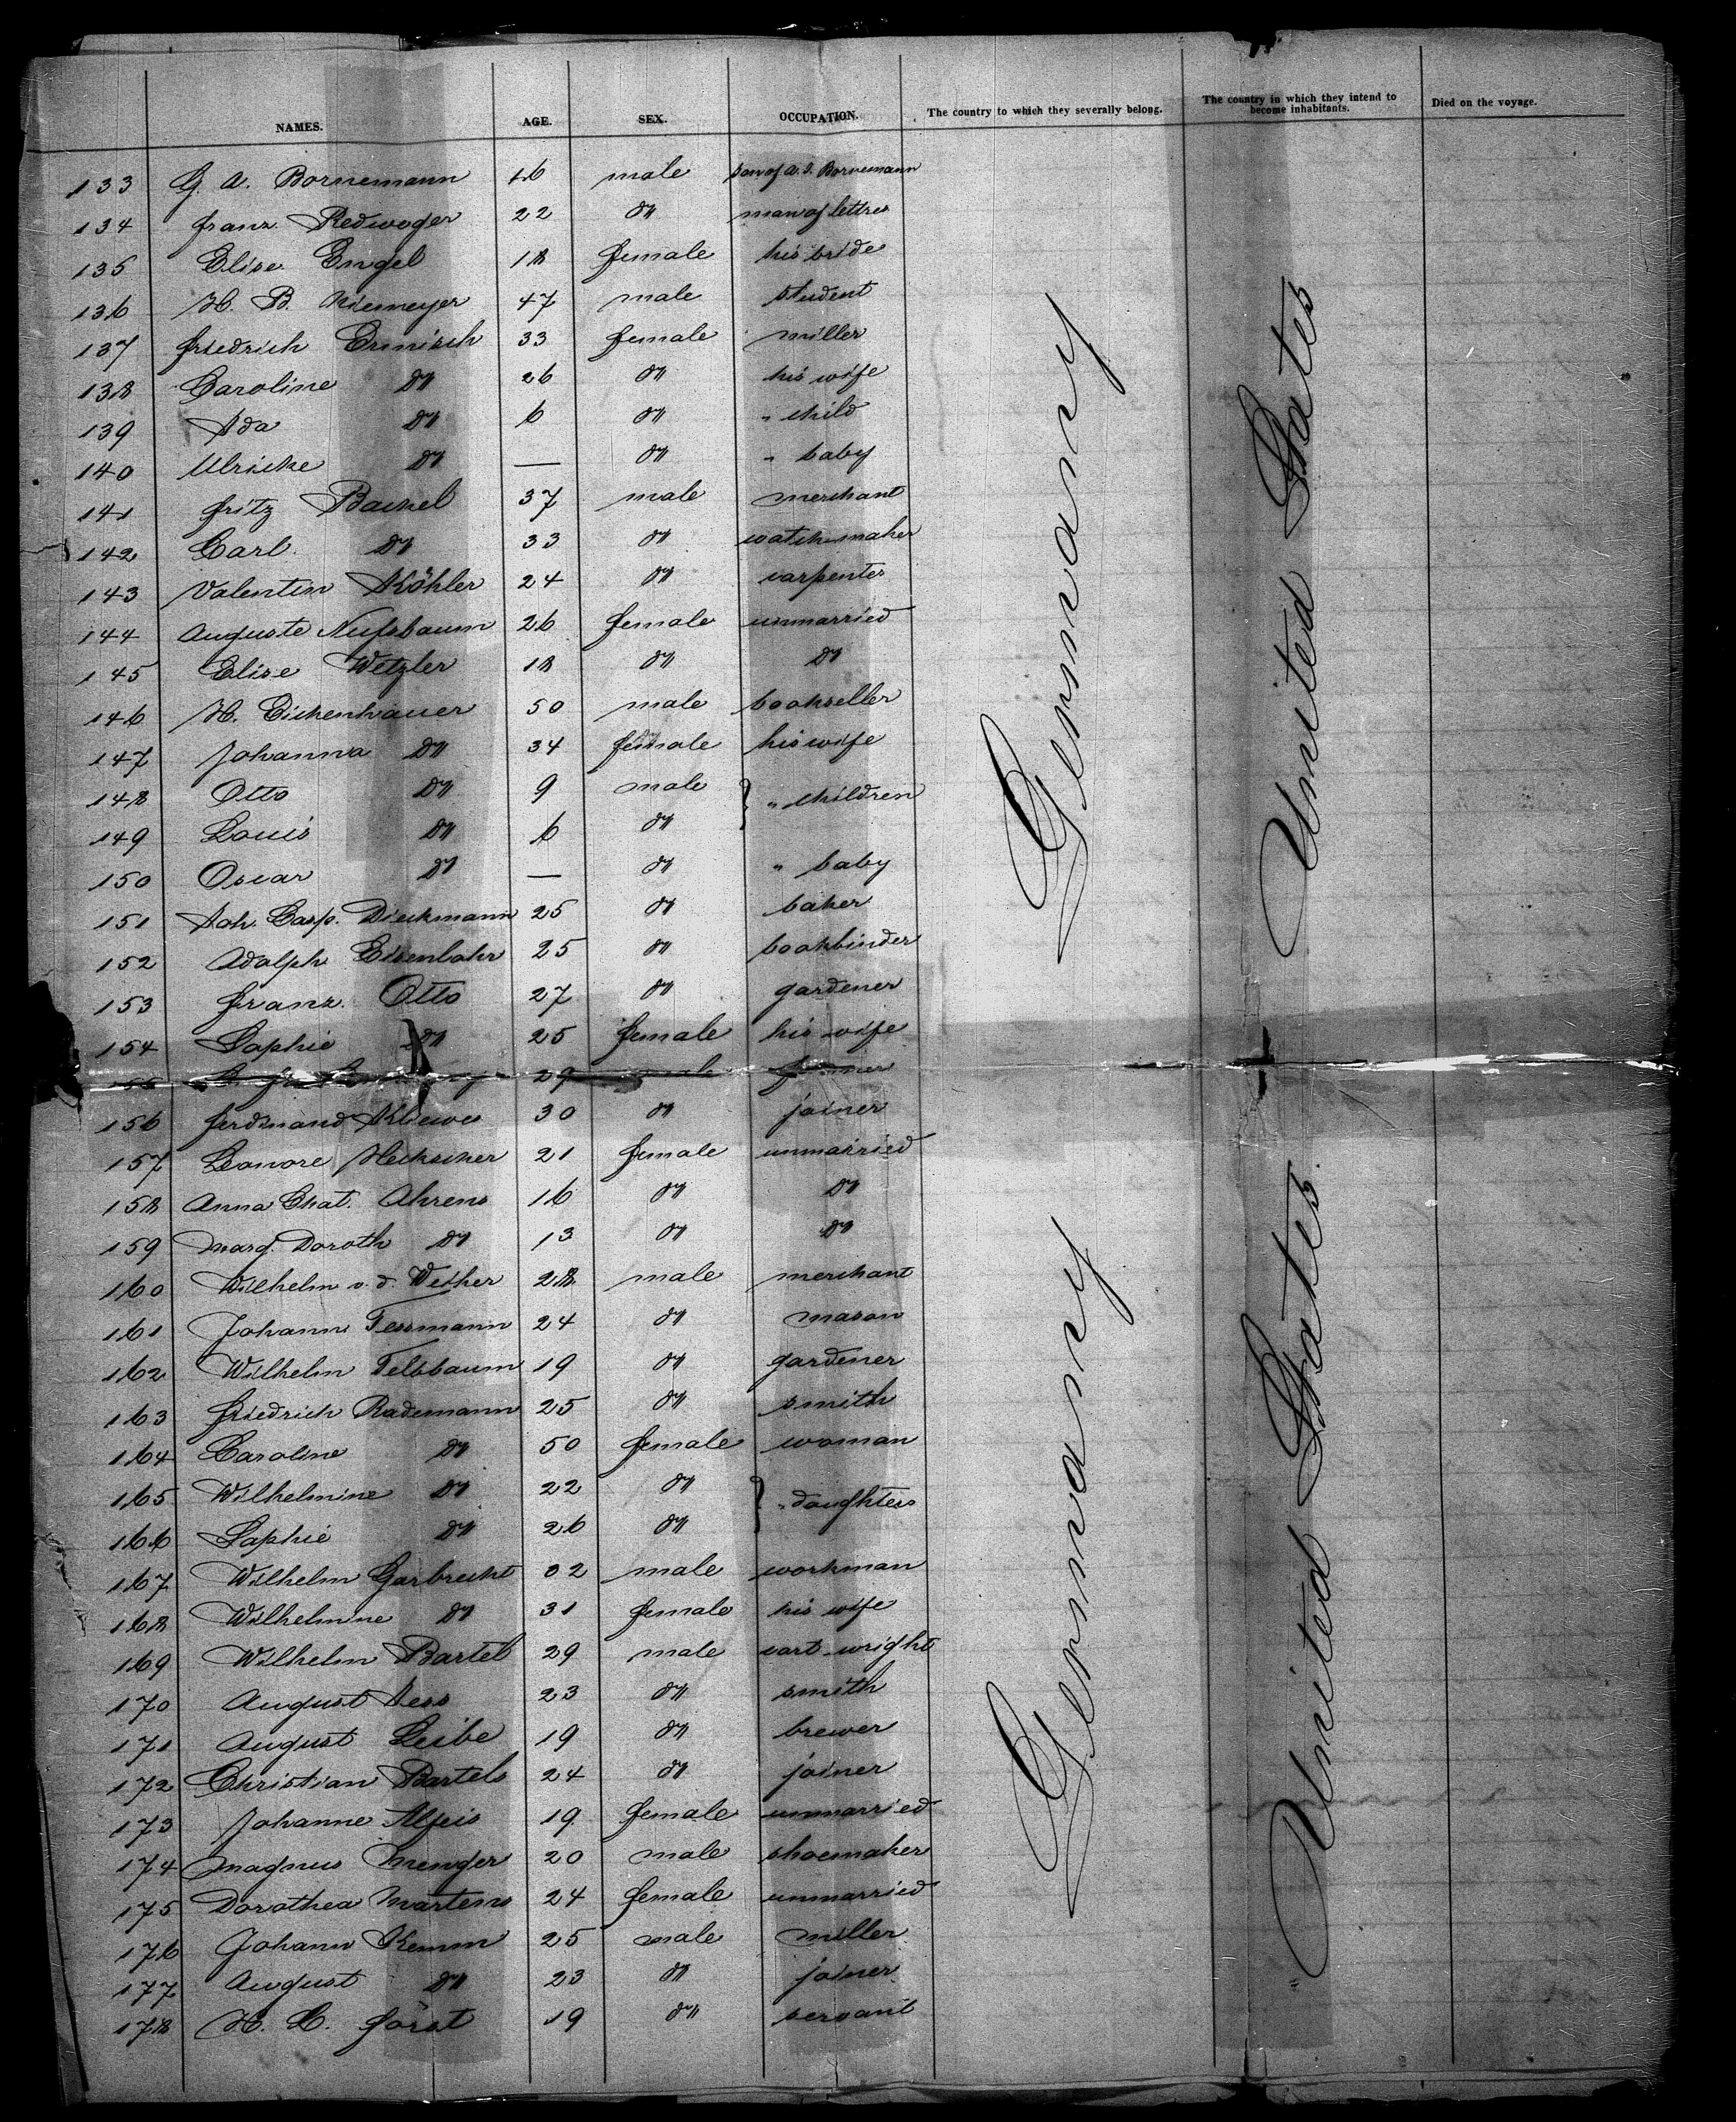 NAMES. AGE. SEX. OCCUPATION. The country to which they severally belong. The country in which they intend to become inhabitants. Died on the voyage.
133 G. A. Bornemann 16 male son of A. I. Bornemann
134 Franz Redwoger 22 do man of lettres
135 Elise Engel 18 female his bride
136 H. B. Niemeyer 47 male student
137 Friedrich Ermisch 33 female miller
138 Caroline do 26 do his wife
139 Ada do 6 do " child
140 Ulricke do — do " baby
141 Fritz Backel 37 male merchant
142 Carl do 33 do watchmaker
143 Valentin Köhler 24 do carpenter
144 Auguste Nußbaum 26 female unmarried
145 Elise Wetzler 18 do do
146 H. Eichenhauer 50 male bookseller
147 Johanna do 34 female his wife
148 Otto do 9 male } " children
149 Louis do 6 do
150 Oscar do — do " baby
151 Joh. Casp. Dieckmann 25 do baker
152 Adolph Eisenlohr 25 do bookbinder
153 Franz Otto 27 do gardener
154 Sophie do 25 female his wife
29
156 Ferdinand Kliewe 30 do joiner
157 Leonore Heckscher 21 female unmarried
158 Anna Chat. Ahrens 16 do do
159 Marg. Doroth do 13 do do
160 Wilhelm v. d. Weiher 28 male merchant
161 Johann Tessmann 24 do mason
162 Wilhelm Telbbaum 19 do gardener
163 Friedrich Rademann 25 do smith
164 Caroline do 50 female woman
165 Wilhelmine do 22 do } " daughters
166 Sophie do 26 do
167 Wilhelm Garbrecht 32 male workman
168 Wilhelmine do 31 female his wife
169 Wilhelm Bartel 29 male cart-wright
170 August Jess 23 do smith
171 August Leibe 19 do brewer
172 Christian Bartels 24 do joiner
173 Johanne Alfeis 19 female unmarried
174 Magnus Menger 20 male shoemaker
175 Dorothea Martens 24 female unmarried
176 Johann Kemm 25 male miller
177 August do 23 do joiner
178 H. C. Först 19 do servant
Germany
United States
Germany
United States